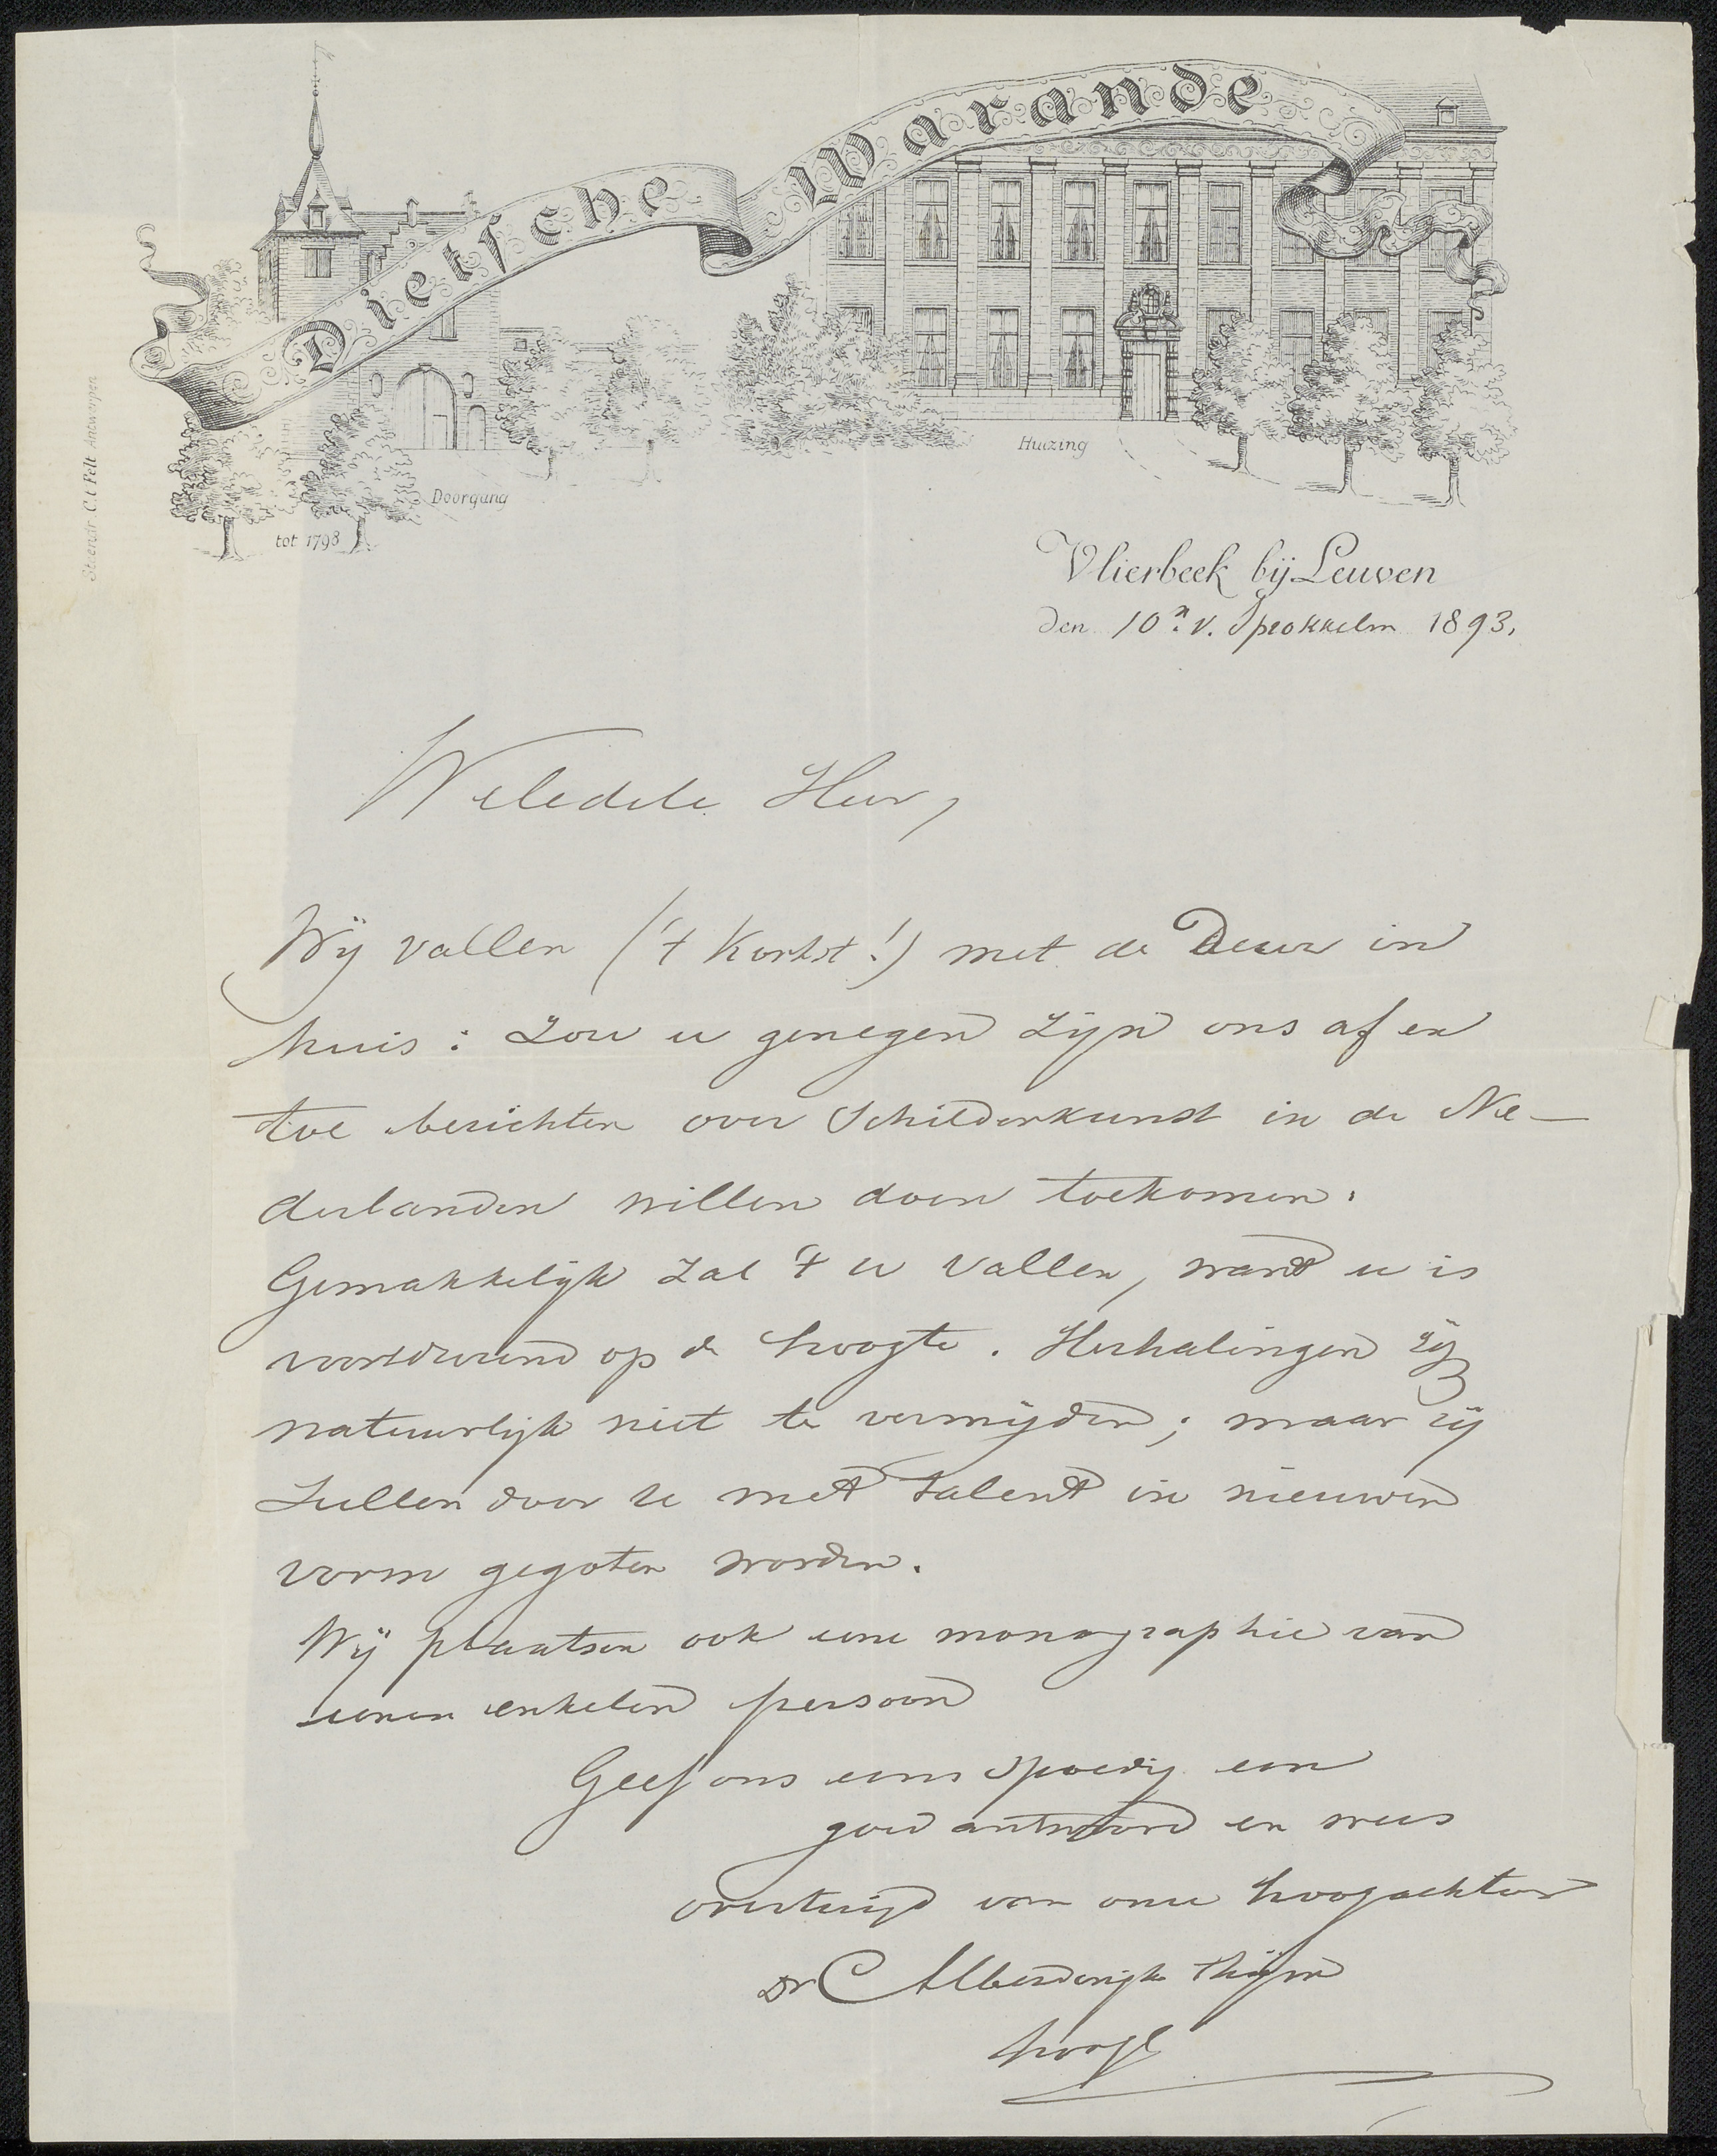 Dietsche Warande
Steendr. C. t Felt Antwerpen
Doorgang
tot 1798
Huizing
Vlierbeek bij Leuven
den 10n v. Sprokkelm 1893.
Weledele Heer,
Wij vallen ('t Kortst!) met de Deur in
huis: Zou u genegen zijn ons af en
toe berichten over Schilderkunst in de Ne-
derlanden willen doen toekomen.
Gemakkelijk zal 't u vallen, want u is
voortdurend op de hoogte. Herhalingen zijn
natuurlijk niet te vermijden; maar zij
zullen door u met talent in nieuwen
vorm gegoten worden.
Wij plaatsen ook eene monographie van
eenen enkelen persoon
Geef ons eens spoedig een
goed antwoord en wees
overtuigd van onze hoogachting
Dr C Alberdingk Thijm
hoogl